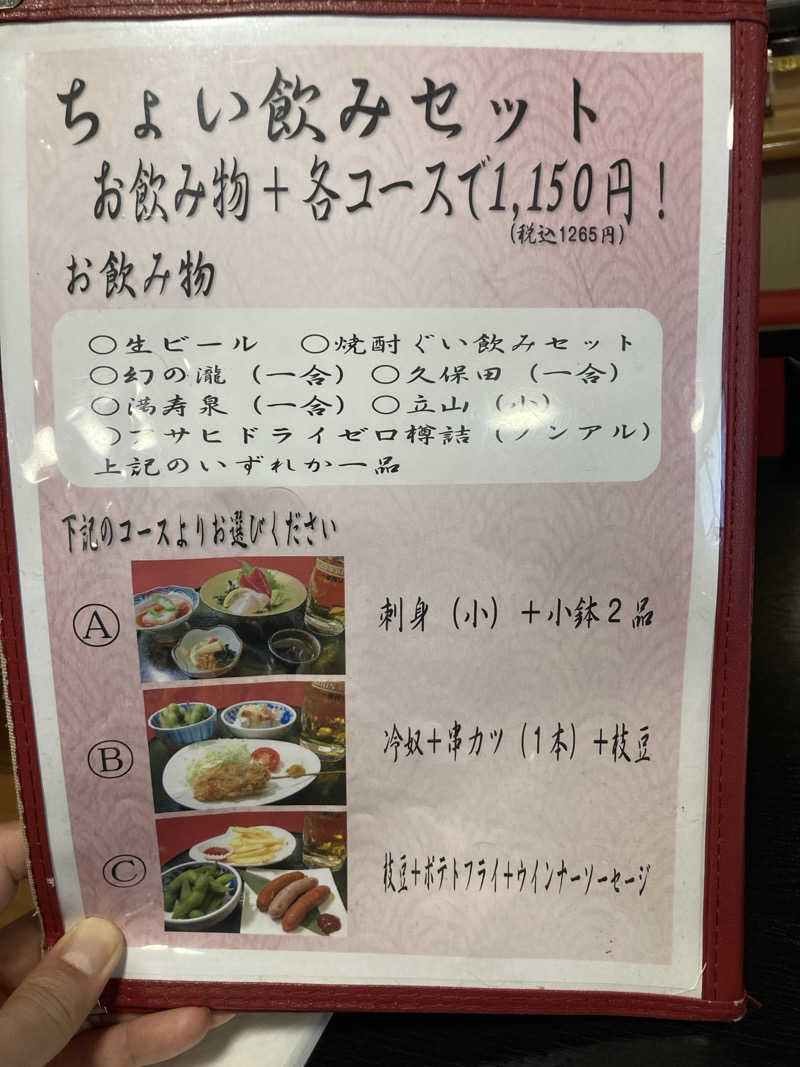 ちょい飲みセット
お飲み物＋各コースで1,150円！
(税込1265円)
お飲み物
○生ビール ○焼酎ぐい飲みセット
○幻の瀧（一合） ○久保田（一合）
○満寿泉（一合） ○立山（小）
○アサヒドライゼロ樽詰（ノンアル）
上記のいずれか一品
下記のコースよりお選びください
Ⓐ 刺身（小）＋小鉢２品
Ⓑ 冷奴＋串カツ（1本）＋枝豆
Ⓒ 枝豆＋ポテトフライ＋ウインナーソーセージ